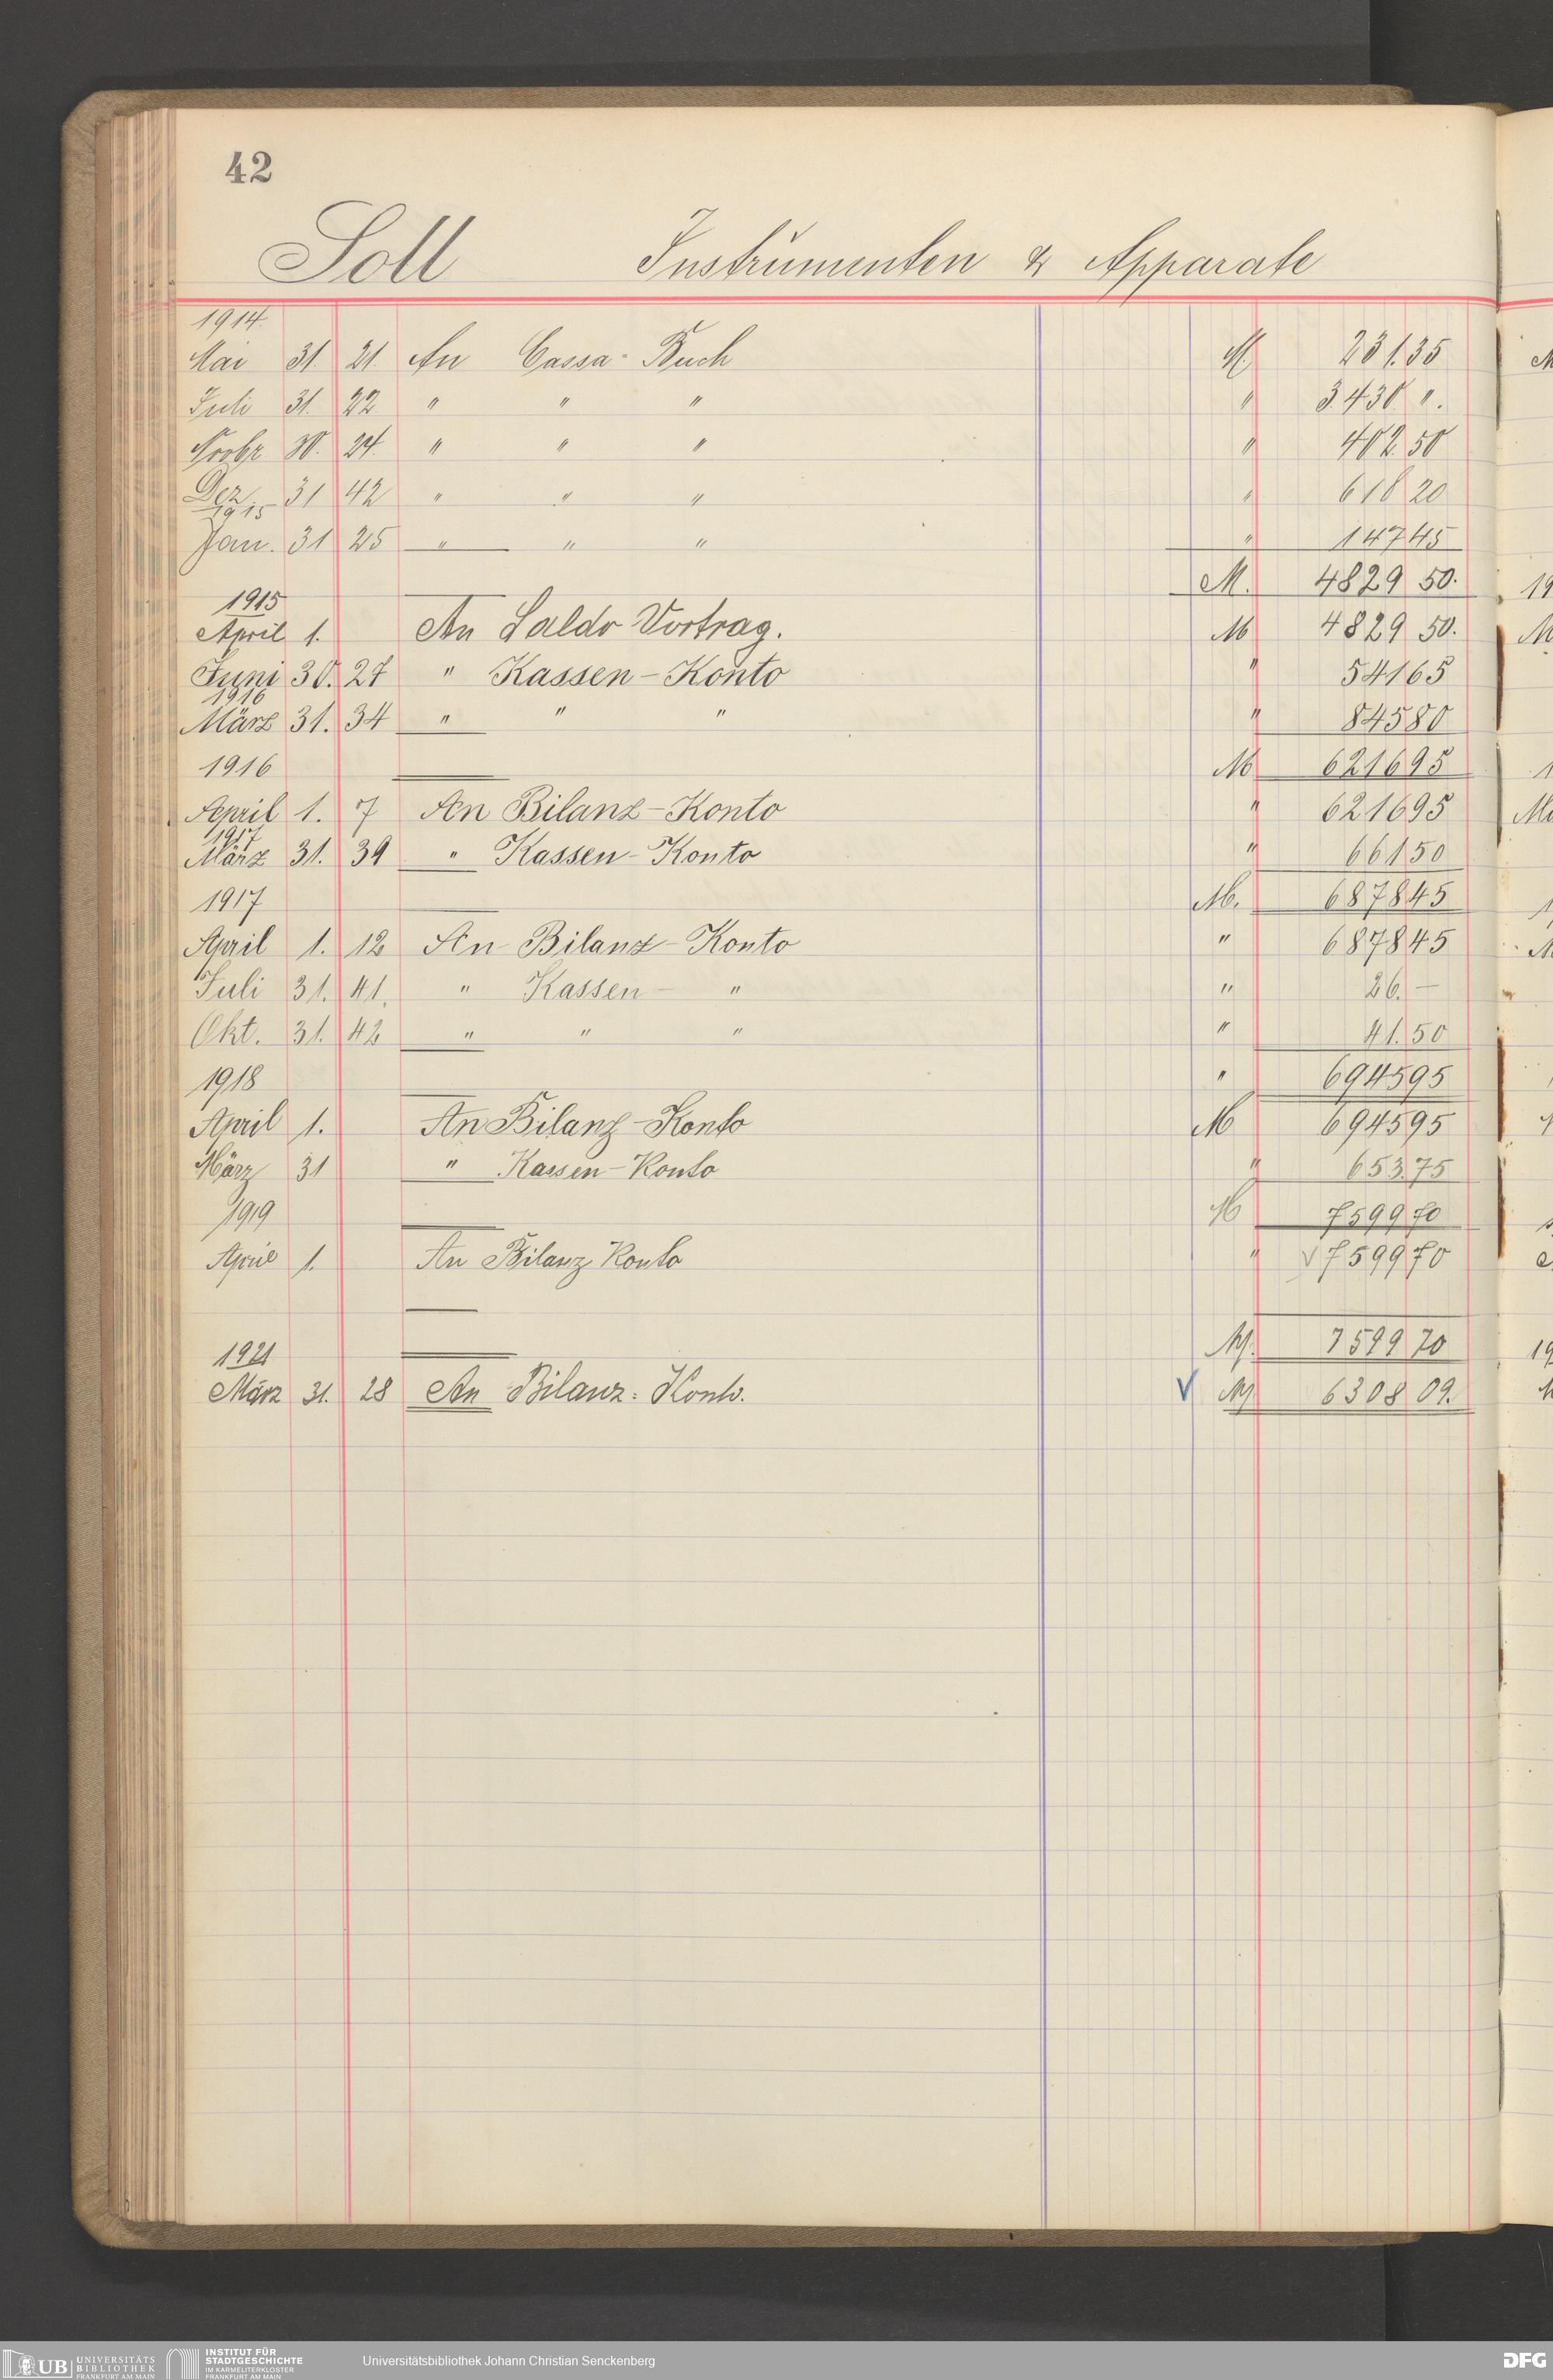 42
Soll Instrumenten & Apparate
1914.
Mai 31. 21. An Cassa-Buch M. 231.35
Juli 31. 22. " " " " 3.430 ".
Novbr 30. 24. " " " " 402.50
Dez. 31 42 " " " " 618 20
1915
Jan. 31 25 " " " " 147 45
M. 4829 50.
1915
April 1. An Saldo Vortrag. M 4829 50.
Juni 30. 27 " Kassen-Konto " 541 65
1916
März 31. 34 " " " " 845 80
1916 M 6216 95
April 1. 7 An Bilanz-Konto " 6216 95
1917
März 31. 39 " Kassen-Konto " 661 50
1917 M. 6878 45
April 1. 12 An Bilanz-Konto " 6878 45
Juli 31. 41. " Kassen- " " 26. —
Okt. 31. 42 " " " " 41. 50
1918 " 6945 95
April 1. An Bilanz-Konto M 6945 95
März 31 " Kassen-Konto " 653.75
1919 M 7599 70
April 1. An Bilanz Konto " 7599 70
M. 7599 70
1921
März 31. 28 An Bilanz-Konto. M 6308 09.
UB UNIVERSITÄTS
BIBLIOTHEK
FRANKFURT AM MAIN
INSTITUT FÜR
STADTGESCHICHTE
IM KARMELITERKLOSTER
FRANKFURT AM MAIN
Universitätsbibliothek Johann Christian Senckenberg
DFG